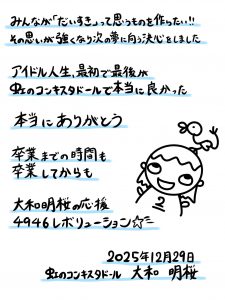 みんなが「だいすき」って思うものを作りたい!!
その思いが強くなり次の夢に向う決心をしました
アイドル人生、最初で最後が
虹のコンキスタドールで本当に良かった
本当にありがとう
卒業までの時間も
卒業してからも
大和明桜の応援
4946レボリューション☆彡
2025年12月29日
虹のコンキスタドール 大和 明桜